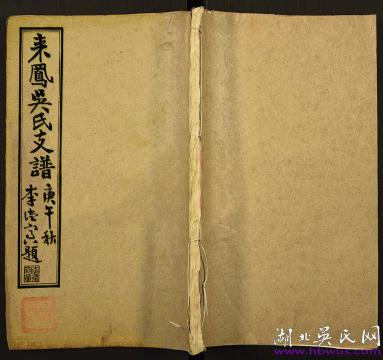 来鳳吳氏支譜
庚午秋
李
題
湖北吴氏网
www.hbwus.com